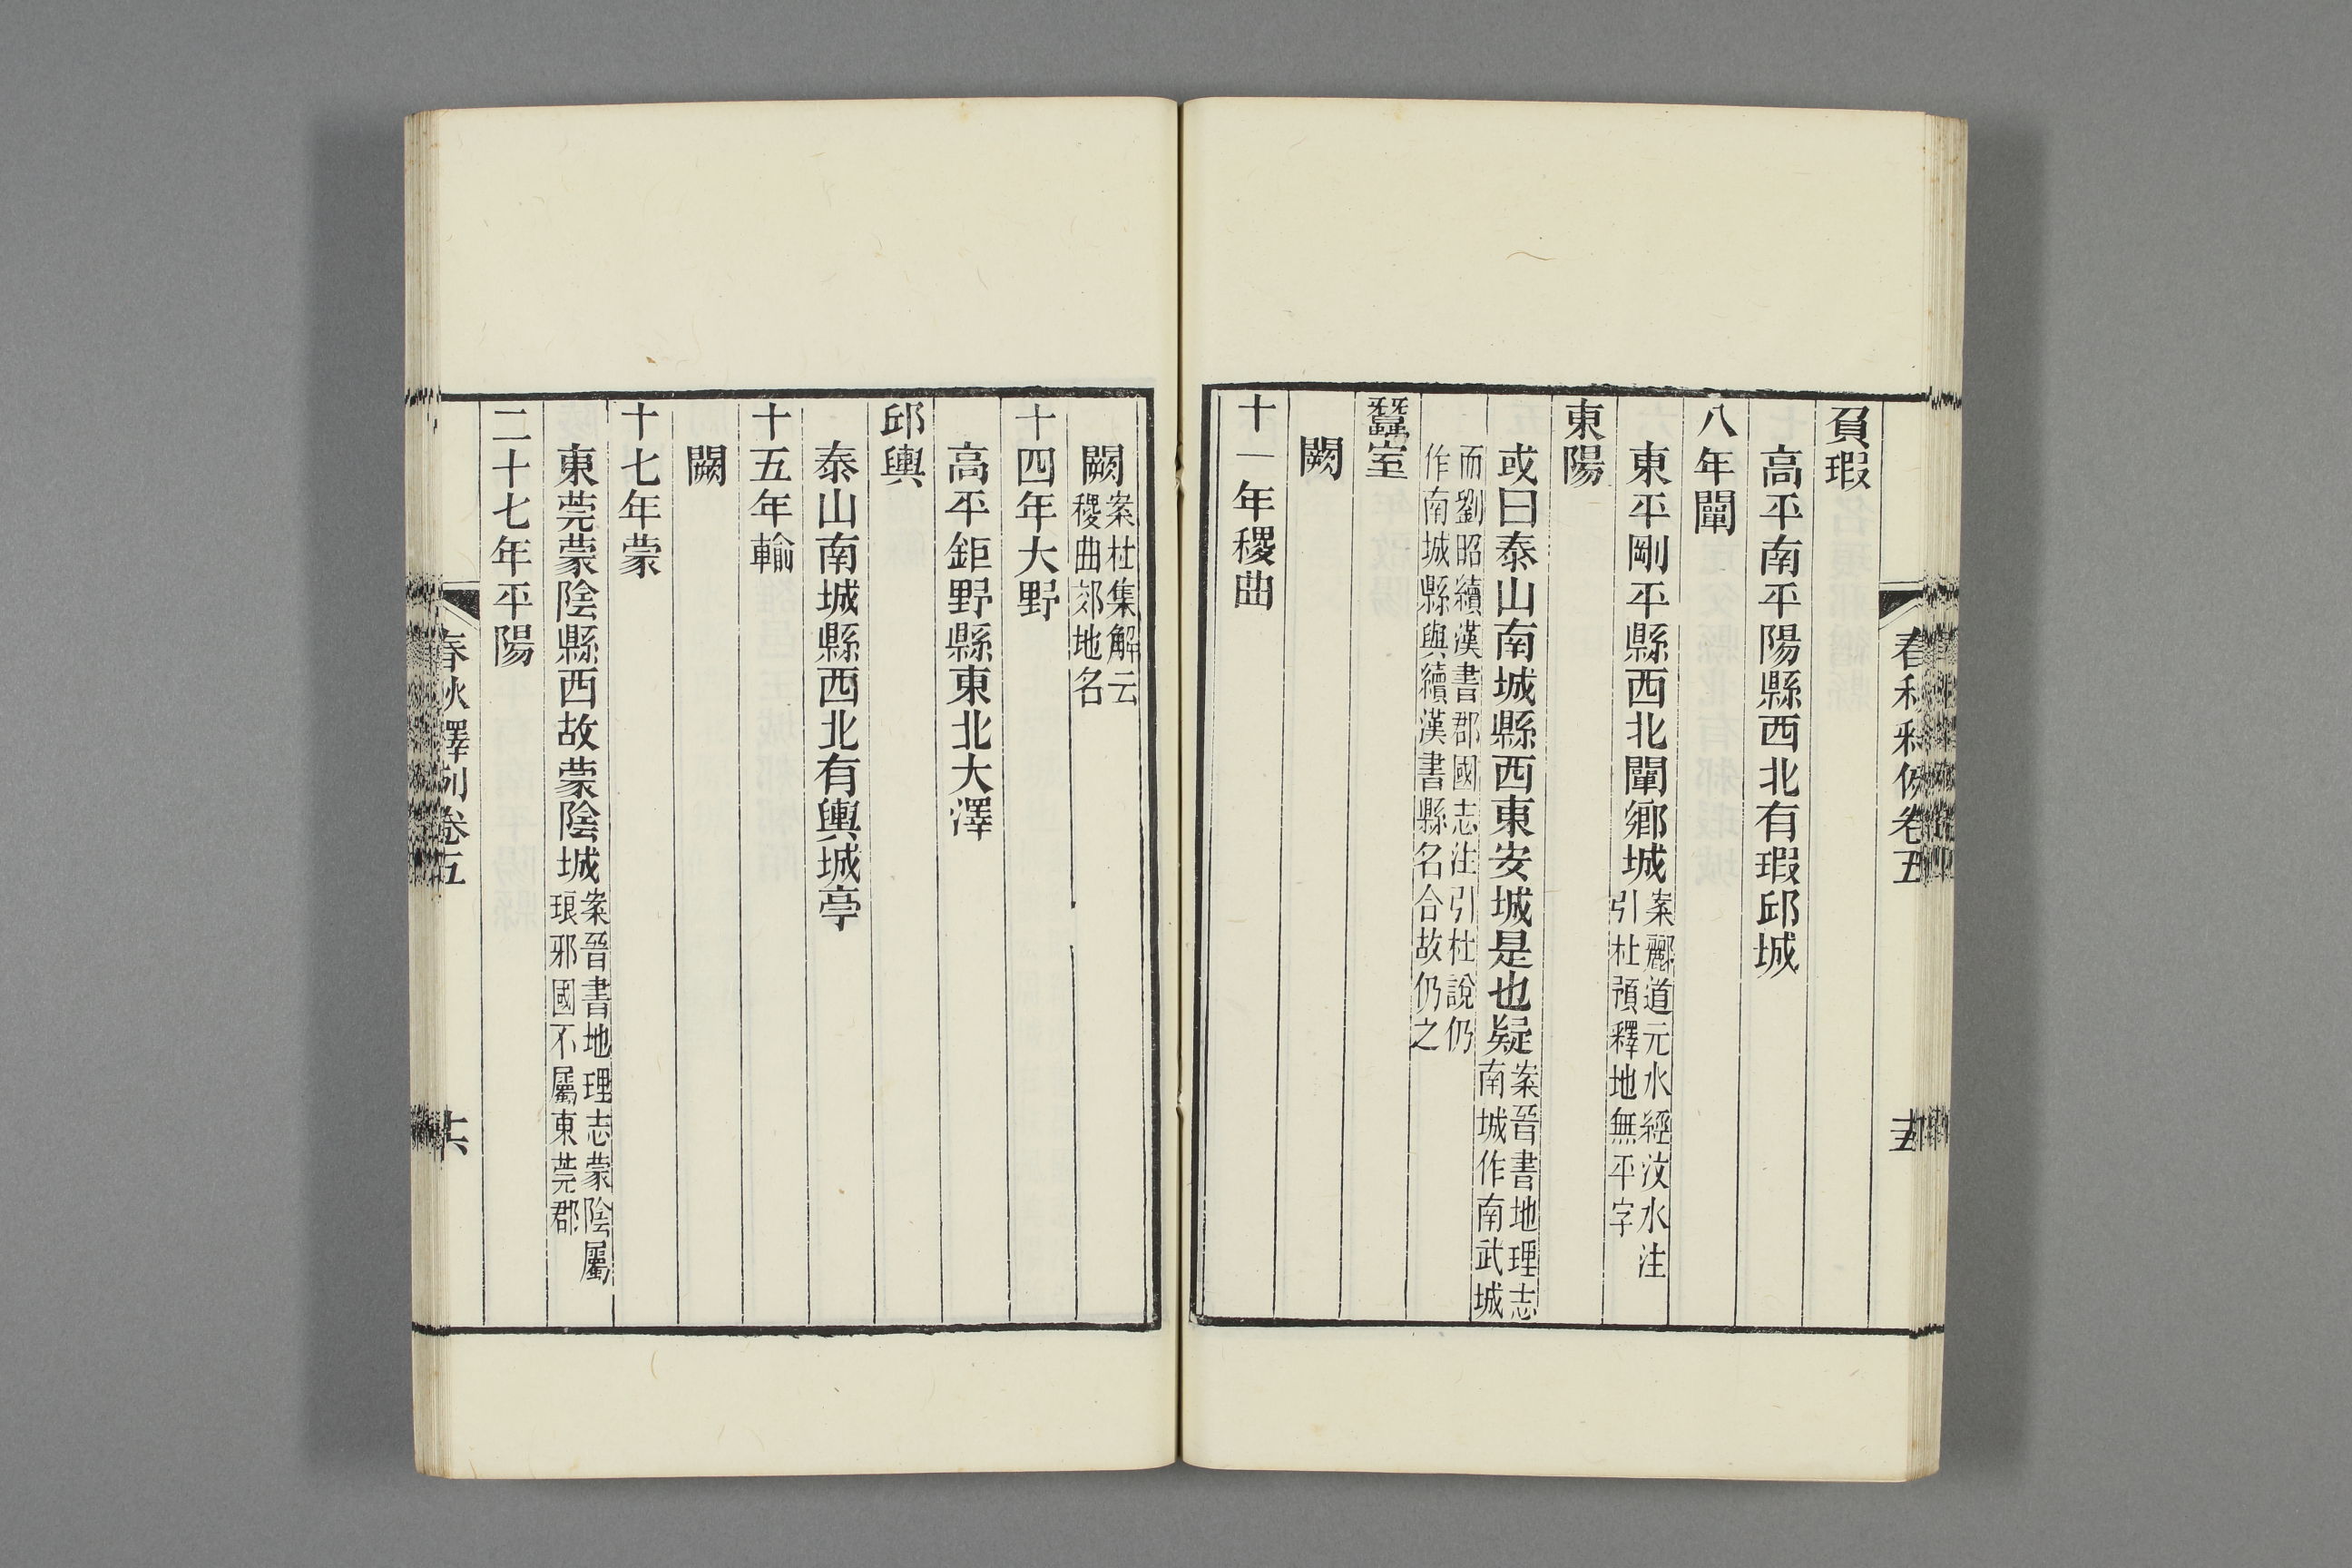 負瑕
高平南平陽縣西北有瑕邱城
八年闡
東平剛平縣西北闡鄉城案酈道元水經汶水注引杜預釋地無平字
東陽
或曰泰山南城縣西東安城是也疑案晉書地理志南城作南武城
而劉昭續漢書郡國志注引杜說仍作南城縣與續漢書縣名合故仍之
蠶室
闕
十一年稷曲
闕案杜集解云稷曲郊地名
十四年大野
高平鉅野縣東北大澤
邱輿
泰山南城縣西北有輿城亭
十五年輸
闕
十七年蒙
東莞蒙陰縣西故蒙陰城案晉書地理志蒙陰屬琅邪國不屬東莞郡
二十七年平陽
春秋釋例卷五
十六
春秋釋例卷五
十五